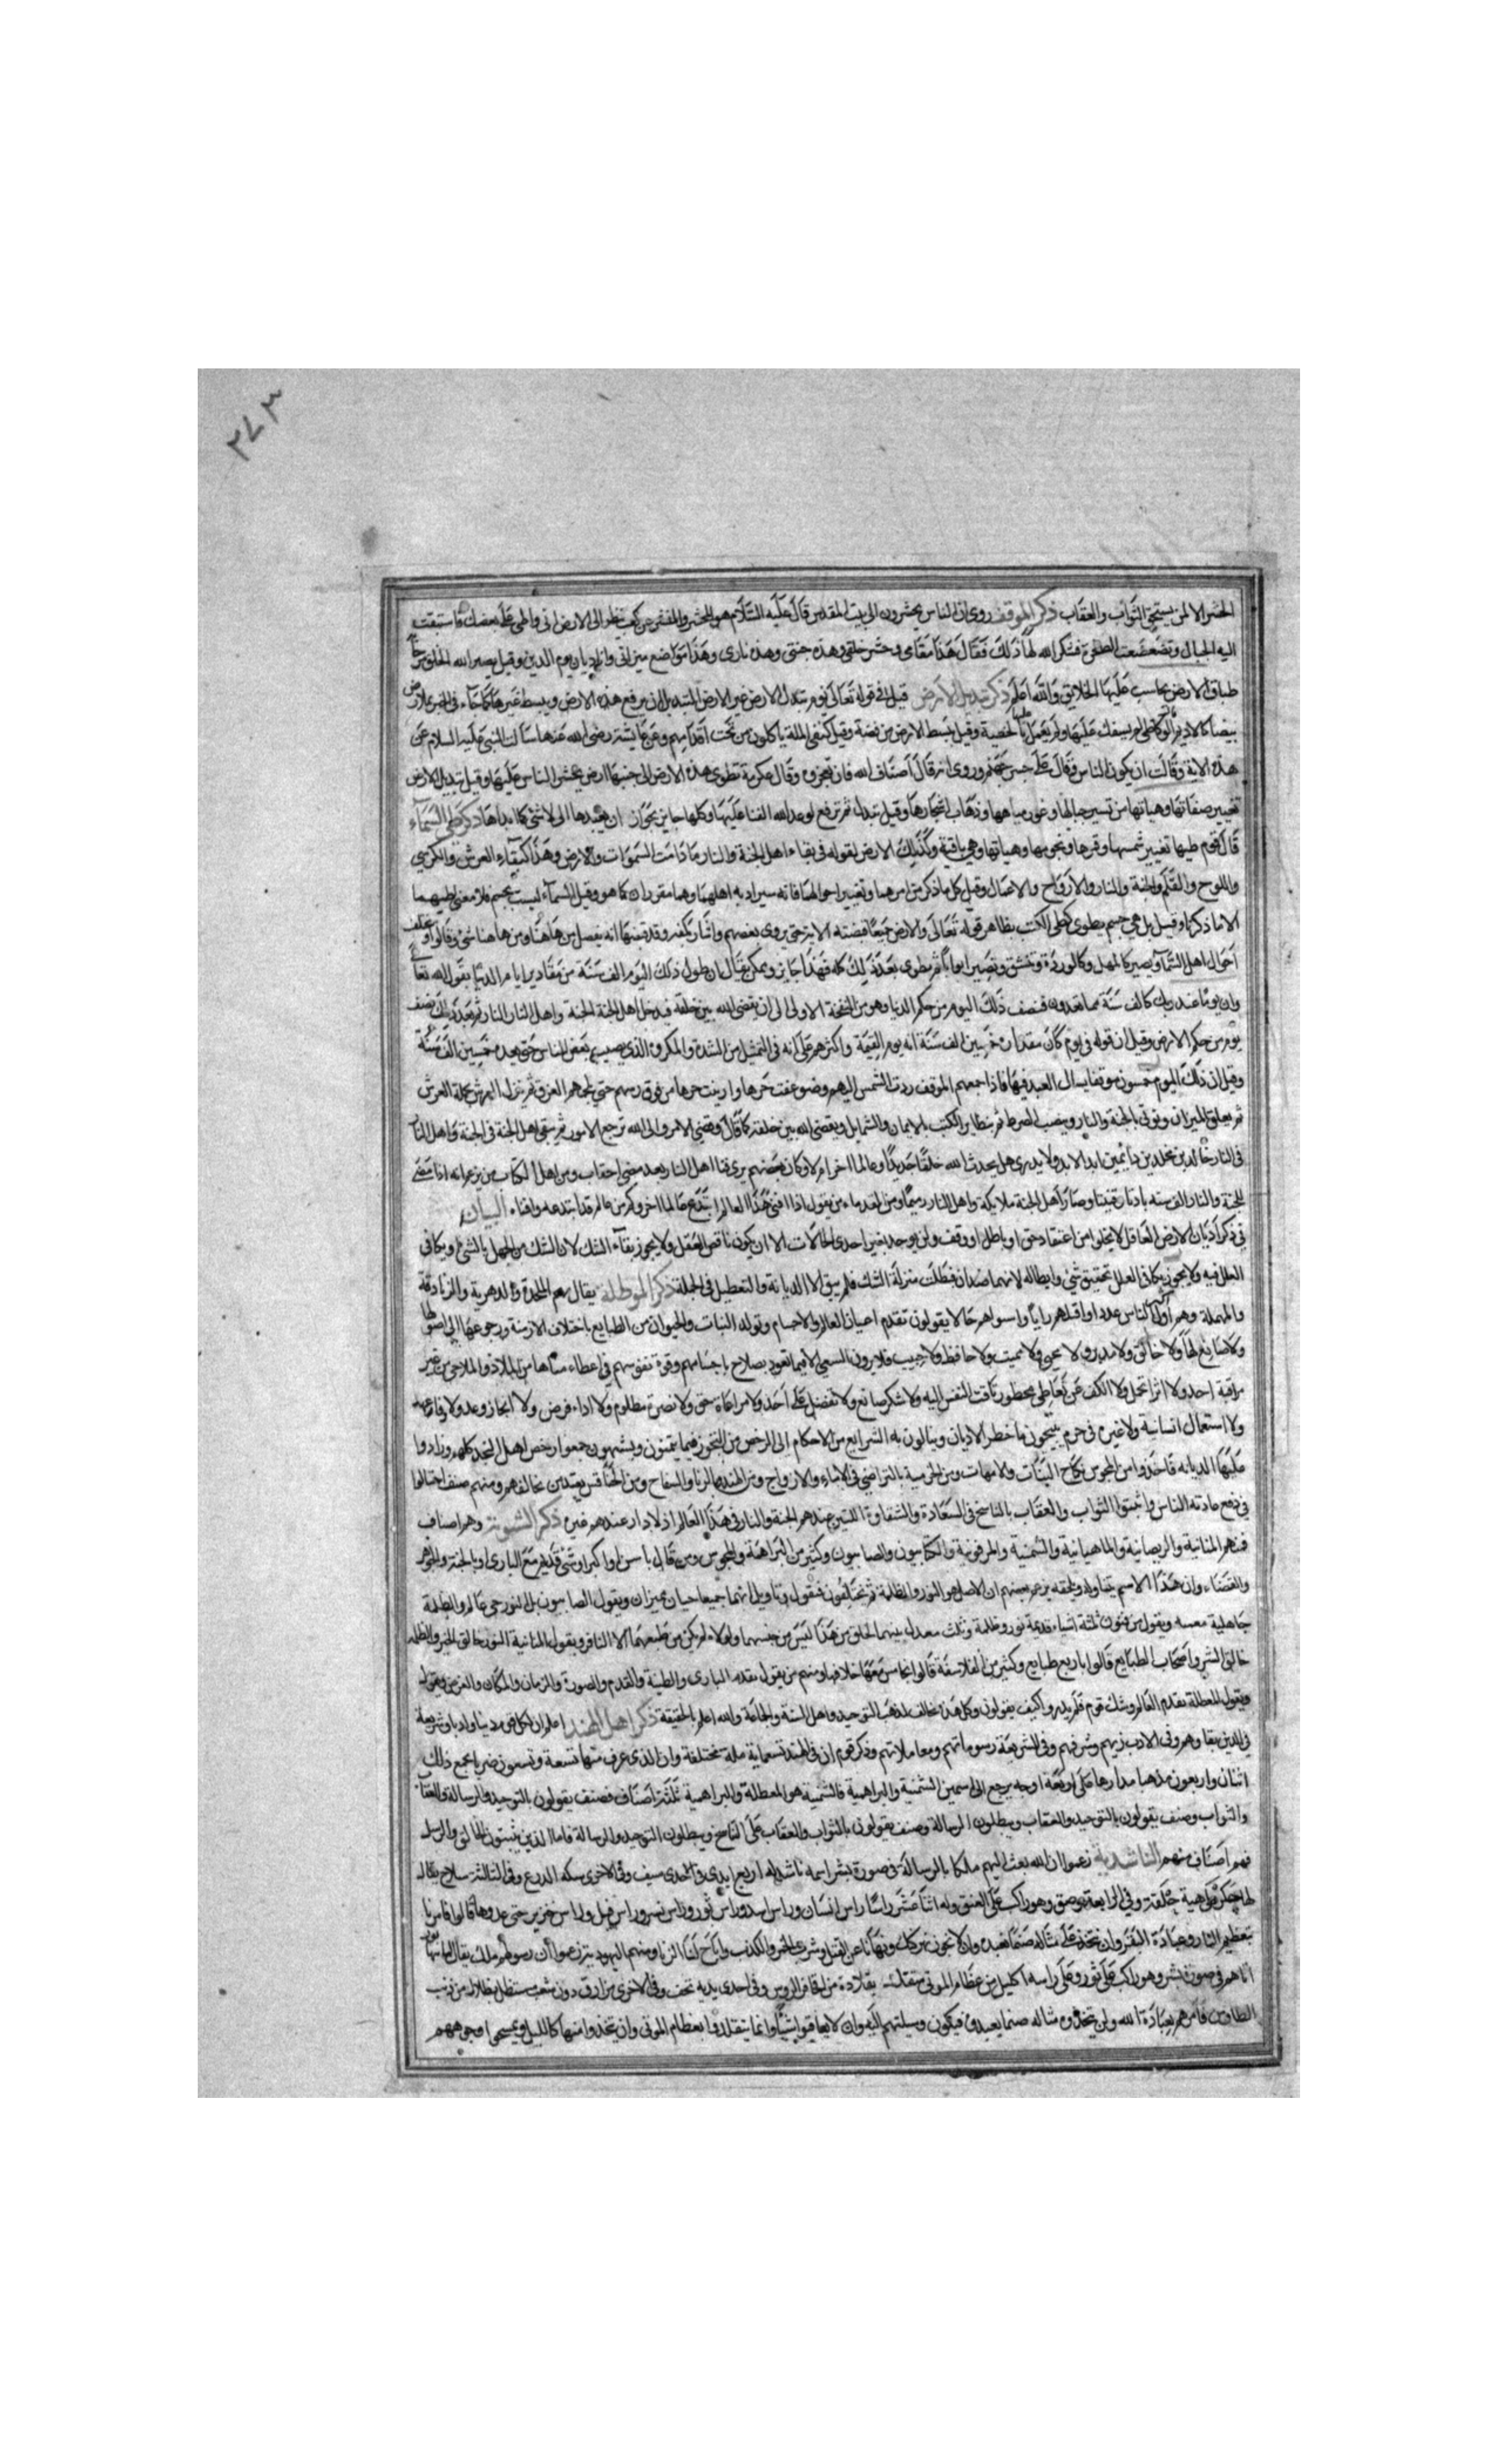 ٢٧٣
الحشر الا لمن يستحق الثواب والعقاب ذكر الموقف روى ان الناس يحشرون الى بيت المقدس قال عليه السلام هو المحشر والمنشر وعن كعب نظر الى الارض انى واطئ على بعضك فاستبقت
اليه الجبال وتضعضعت الصخرة فشكر الله لها ذلك فقال هذا مقامى ومحشر خلقى وهذه جنتى وهذه نارى وهذا مواضع ميزانى وانا ديان يوم الدين وقيل يصير الله الخلق من
طباق الارض يحاسب عليها الخلايق والله اعلم ذكر تبديل الارض قيل فى قوله تعالى يوم تبدل الارض غير الارض التبديل ان يرفع هذه الارض ويبسط غيرها كما جاء فى الخبر على ارض
بيضا كالاديم العكاظى لم يسفك عليها ولم يعمل عليها خطيئة وقيل تبسط الارض من فضة وقيل كنقى الملة ياكلون من تحت اقدامهم وعن عايشة رضى الله عنها سالت النبى عليه السلام عن
هذه الاية وقالت اين يكون الناس فقال على جسر جهنم وروى انه قال اضياف الله فلن يعجزوه وقال عكرمة تطوى هذه الارض الى جنبها ارض يحشر الناس عليها وقيل تبديل الارض
تغيير صفاتها وهياتها من تسيير جبالها وغور مياهها وذهاب اشجارها وقيل تبدل ثم ترفع لوعد الله الفنا عليها وكلها جايز يجوز ان يعيدها الى لا شئ كما بداها ذكر طى السماء
قال قوم طيها تغيير شمسها وقمرها ونجومها وهياتها وهى باقية وكذلك الارض لقوله فى بقاء اهل الجنة والنار ما دامت السموات والارض وهذا كبقاء العرش والكرسى
واللوح والقلم والجنة والنار والارواح والاعمال وقيل كل ما ذكر من امرهما وتغيير احوالهما فانه سيراد به اهلهما وهما مقرران كما هو وقيل السماء ليست بجسم فلا معنى لطيها
الا ما ذكرنا وقيل بل هى جسم يطوى كطى الكتب بظاهر قوله تعالى والارض جميعا قبضته الاية حتى يروى بعضهم واشار بكفه وقد قبضها انه يفضل من هاهنا ومن هاهنا شئ وقالوا
احوال اهل السماء يصير كالمهل وكالوردة وتنشق وتصير ابوابا ثم يطوى بعد ذلك كله فهذا جايز ويمكن يقال ان طول ذلك اليوم الف سنة من مقادير ايام الدنيا بقول الله تعالى
وان يوما عند ربك كالف سنة مما تعدون فنصف ذلك اليوم من حكم الدنيا وهو من النفخة الاولى الى ان يقضى الله بين خلقه فيدخل اهل الجنة الجنة واهل النار النار ثم بعد ذلك نصف
يوم من حكم الارض وقيل ان قوله فى يوم كان مقداره خمسين الف سنة انه يوم القيمة واكثرهم على انه فى التمثيل من الشدة والمكروه الذى يصيب بعض الناس حتى يعده خمسين الف سنة
وقيل ان ذلك اليوم خمسون موقفا يسال العبد فيها فاذا جمعهم الموقف ردت الشمس اليهم وضوعفت حرها وادنيت حرها من فوق رسهم حتى يلجمهم العرق ثم ينزل العرش بحملة العرش
ثم يعلق الميزان ويوتى بالجنة والنار وينصب الصراط ثم يتطاير الكتب بالايمان والشمايل ويقضى الله بين خلقه كما قال وقضى الامر والى الله ترجع الامور ثم يبقى اهل الجنة فى الجنة واهل النار
فى النار خالدين مخلدين دائمين ابد الابد ولا يدرى هل يحدث الله خلقا جديدا وعالما اخر ام لا وكان بعضهم يرى فنا اهل النار بعد مضى احقاب ومن اهل الكتاب من يزعم انه اذا مضى
للجنة والنار الف سنة بادتا وفنيتا وصار اهل الجنة ملايكة واهل النار رميما ومن القدماء من يقول اذا افنى هذا العالم ابتدع عالما اخر وكم من عالم قد ابتدعه وافناه البيان
فى ذكر اديان الارض العاقل لا يخلوا من اعتقاد حق او باطل او وقف ولن يوجد بغير احدى الحالات الا ان يكون ناقص العقل ولا يجوز بقاء الشك لان الشك من الجهل بالشئ وتكافى
العلل فيه ولا يجوز تكافى العلل بتحقيق شئ وابطاله لانهما ضدان فبطلت منزلة الشك فلم يبق الا الديانة والتعطيل فى الجملة ذكر المعطلة يقال لهم الملحدة والدهرية والزنادقة
والمهملة وهم اقل الناس عددا وافيلهم رايا واسواهم حالا يقولون بقدم اعيان العالم والاجسام وتولد النبات والحيوان من الطبايع باختلاف الازمنة ورجوعها الى اصولها
ولا صانع لها ولا خالق ولا مدبر ولا محيى ولا مميت ولا حافظ ولا حبيب فلا يرون السعى الا فيما تعود بصلاح باجسامهم وقوة نفوسهم فى اعطاء مناها من الملاذ والملاهى من غير
مراقبة احد ولا اثر اتحمل ولا الكف عن تعاطى محظور تاقت النفس اليه ولا شكر صانع ولا تفضل على احد ولا مراعاة حق ولا نصرة مظلوم ولا اداء فرض ولا انجاز وعد ولا وفا بعهد
ولا استعمال انسانية ولا غيره فى حرم يبيحون ما حظر الاديان وينالون به الشرايع من الاحكام الى الرخص من التجوز فيما يتمنون ويشتهون جمعوا رخص اهل النحل كلهم وزادوا
عليها الديانه فاخذوا من المجوس نكاح البنات والامهات ومن الخرمية بالتراضى فى الاماء والازواج ومن الهند بالزنا والسفاح ومن الخناقين يعتدين مخالفهم ومنهم صنف احتالوا
فى دفع عادته الناس واثبتوا الثواب والعقاب بالتناسخ فى السعادة والشقاوة اللتين عندهم الجنة والنار فى هذا العالم اذ لا دار عندهم غيره ذكر الثنوية وهم اصناف
فمنهم المنانية والديصانية والماهيانية والسمنية والمرقونية والكتابيون والصابيون وكثير من البراهمة والمجوس ومن قال باسن او اكبر او شئ قديم مع البارى او بالجنة والجوهر
والفضاء وان هذا الاسم يتناوله ويلحقه يزعم بعضهم ان الاصل هو النور والظلمة ثم يختلفون فيقول وتاويل انهما جميعا حيان مميزان ويقول الصابيون بل النور حى عالم والظلمة
جاهلية معمية ويقول من فنون ثلثة اشياء قديمة نور وظلمة وثلث معدل بينهما الخلق من هذا ليس من جنسهما ولولاه لم يكن من طبعهما الا التنافر ويقول المنانية النور خالق الخير والظلمة
خالق الشر واصحاب الطبايع قالوا باربع طبايع وكثير من الفلاسفة قالوا بخامس معها خلافها ومنهم من يقول بقدم البارى والطينة والقدم والصورة والزمان والمكان والعرض ويقول
ويقول المعطلة بقدم العالم وشك قوم فلم يدروا كيف يقولون وكل هذه مخالف لمذهب التوحيد واهل السنة والجماعة والله اعلم بالحقيقة ذكر اهل الهند اعلم ان لكل قوم دينا وادبا وشريعة
فى الدين بقاوهم وفى الادب زينهم وشرفهم وفى الشريعة رسوماتهم ومعاملاتهم وذكر قوم ان فى الهند تسعماية ملة مختلفة وان الذى عرف منها تسعة وتسعون ضربا يجمع ذلك
اثنان واربعون مذهبا مدارها على اربعة اوجه يرجع الى اسمين السمنية والبراهمية فالسمنية هو المعطلة والبراهمية ثلثة اصناف فصنف يقولون بالتوحيد والرسالة والعقاب
والثواب وصنف يقولون بالتوحيد والعقاب ويبطلون الرسالة وصنف يقولون بالثواب والعقاب على التناسخ ويبطلون التوحيد والرسالة فاما الذين يثبتون الخالق والرسل
فهم اصناف منهم الناشدية زعموا ان الله بعث اليهم ملكا بالرسالة فى صورة بشر اسمه ناشد له اربع ايدى فى احدى سيف وفى الاخرى سكه الدرع وفى الثالثة سلاح يقال
لها جكر كهيئة حلقة وفى الرابعة وهق وهو راكب على العنق وله اثنا عشر راسا راس انسان وراس اسد وراس ثور وراس نسر وراس فيل وراس خنزير حتى عدوها قالوا فامرنا
بتعظيم النار وعبادة البقر وان نتخذ على مثاله صنما نعبده وان لا نجوز نهر كنك ونهانا عن القتل وشرب الخمر والكذب واباح لنا الزنا ومنهم البهوديه زعموا ان رسولهم ملك يقال له بهابود
اتاهم فى صورة بشر وهو راكب على ثور وعلى راسه اكليل من عظام الموتى متقلد بقلادة من اقحاف الروس وفى احدى يديه قحف وفى الاخرى مزراق ذو ثلث شعب مستظل بظلال من ذنب
الطاوس فامرهم بعبادة الله ولن يتخذوه مثاله صنما يعبدوه فيكون وسيلتهم اليه وان لا يعافوا شيئا وانما يتقلدوا بعظام الموتى وان يتخذوا منها كالليل ويمسحوا وجوههم